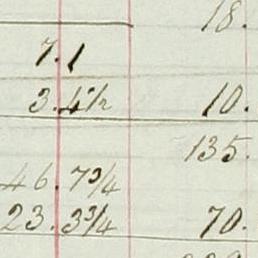 18.
7.1
3.4½ 10.
135.
46.7¾
23.3¾ 70.